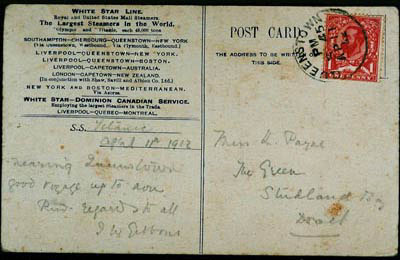 WHITE STAR LINE.
Royal and United States Mail Steamers.
The Largest Steamers in the World.
"Olympic" and "Titanic," each 45,000 tons
SOUTHAMPTON-CHERBOURG-QUEENSTOWN-NEW YORK
(Via Queenstown, Westbound. Via Plymouth, Eastbound.)
LIVERPOOL-QUEENSTOWN-NEW YORK.
LIVERPOOL-QUEENSTOWN-BOSTON.
LIVERPOOL-CAPETOWN-AUSTRALIA.
LONDON-CAPETOWN-NEW ZEALAND.
(In conjunction with Shaw, Savill and Albion Co. Ltd.)
NEW YORK AND BOSTON-MEDITERRANEAN.
Via Azores.
WHITE STAR-DOMINION CANADIAN SERVICE.
Employing the largest Steamers in the Trade.
LIVERPOOL-QUEBEC-MONTREAL.
S.S. Titanic
April 11th 1912
nearing Queenstown
good voyage up to now
Kind regards to all
J W Gibbons
POST CARD
THE ADDRESS TO BE WRITTEN ON
THIS SIDE.
QUEENSTOWN
PM
ONE PENNY
Miss H. Payne
The Green
Studland Bay
Dorset